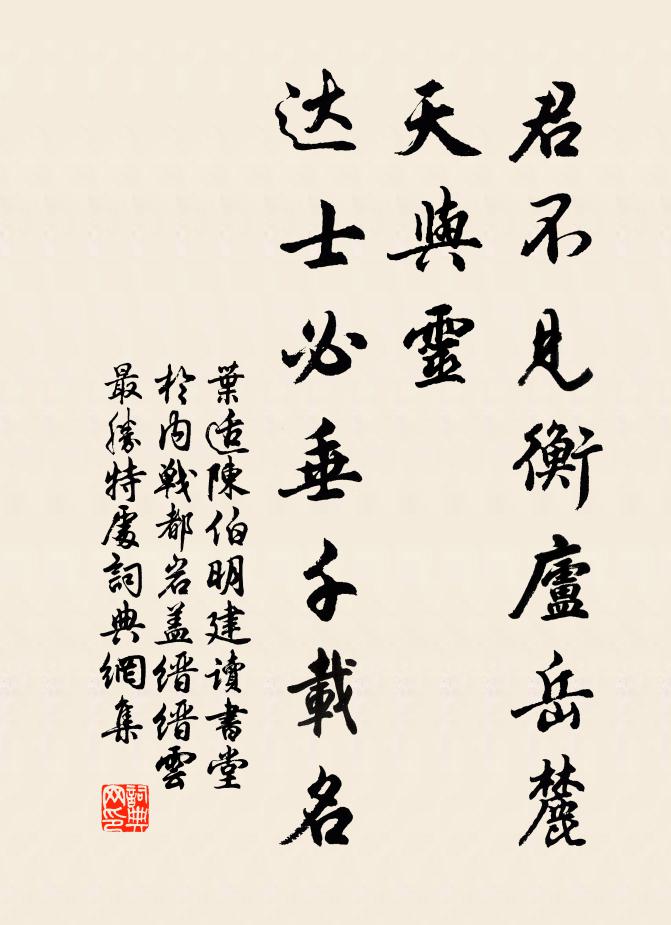 君不見衡廬岳麓
天與靈
达士必垂千載名
葉适陳伯明建讀書堂
於内戰都岩盖縉縉雲
最勝特處詞典網集
詞典网印